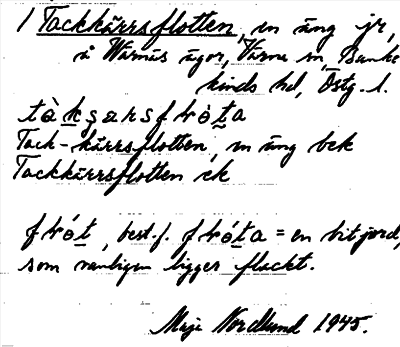 1 Tackkärrsflotten, en äng jr,
å Wärnäs ägor, Värna sn, Banke
kinds hd, Östg. l.
Tack-kärrsflotten, en äng bek
Tackkärrsflotten ek
best. f. = en bit jord,
som vanligen ligger flackt.
Maja Nordlund 1945.